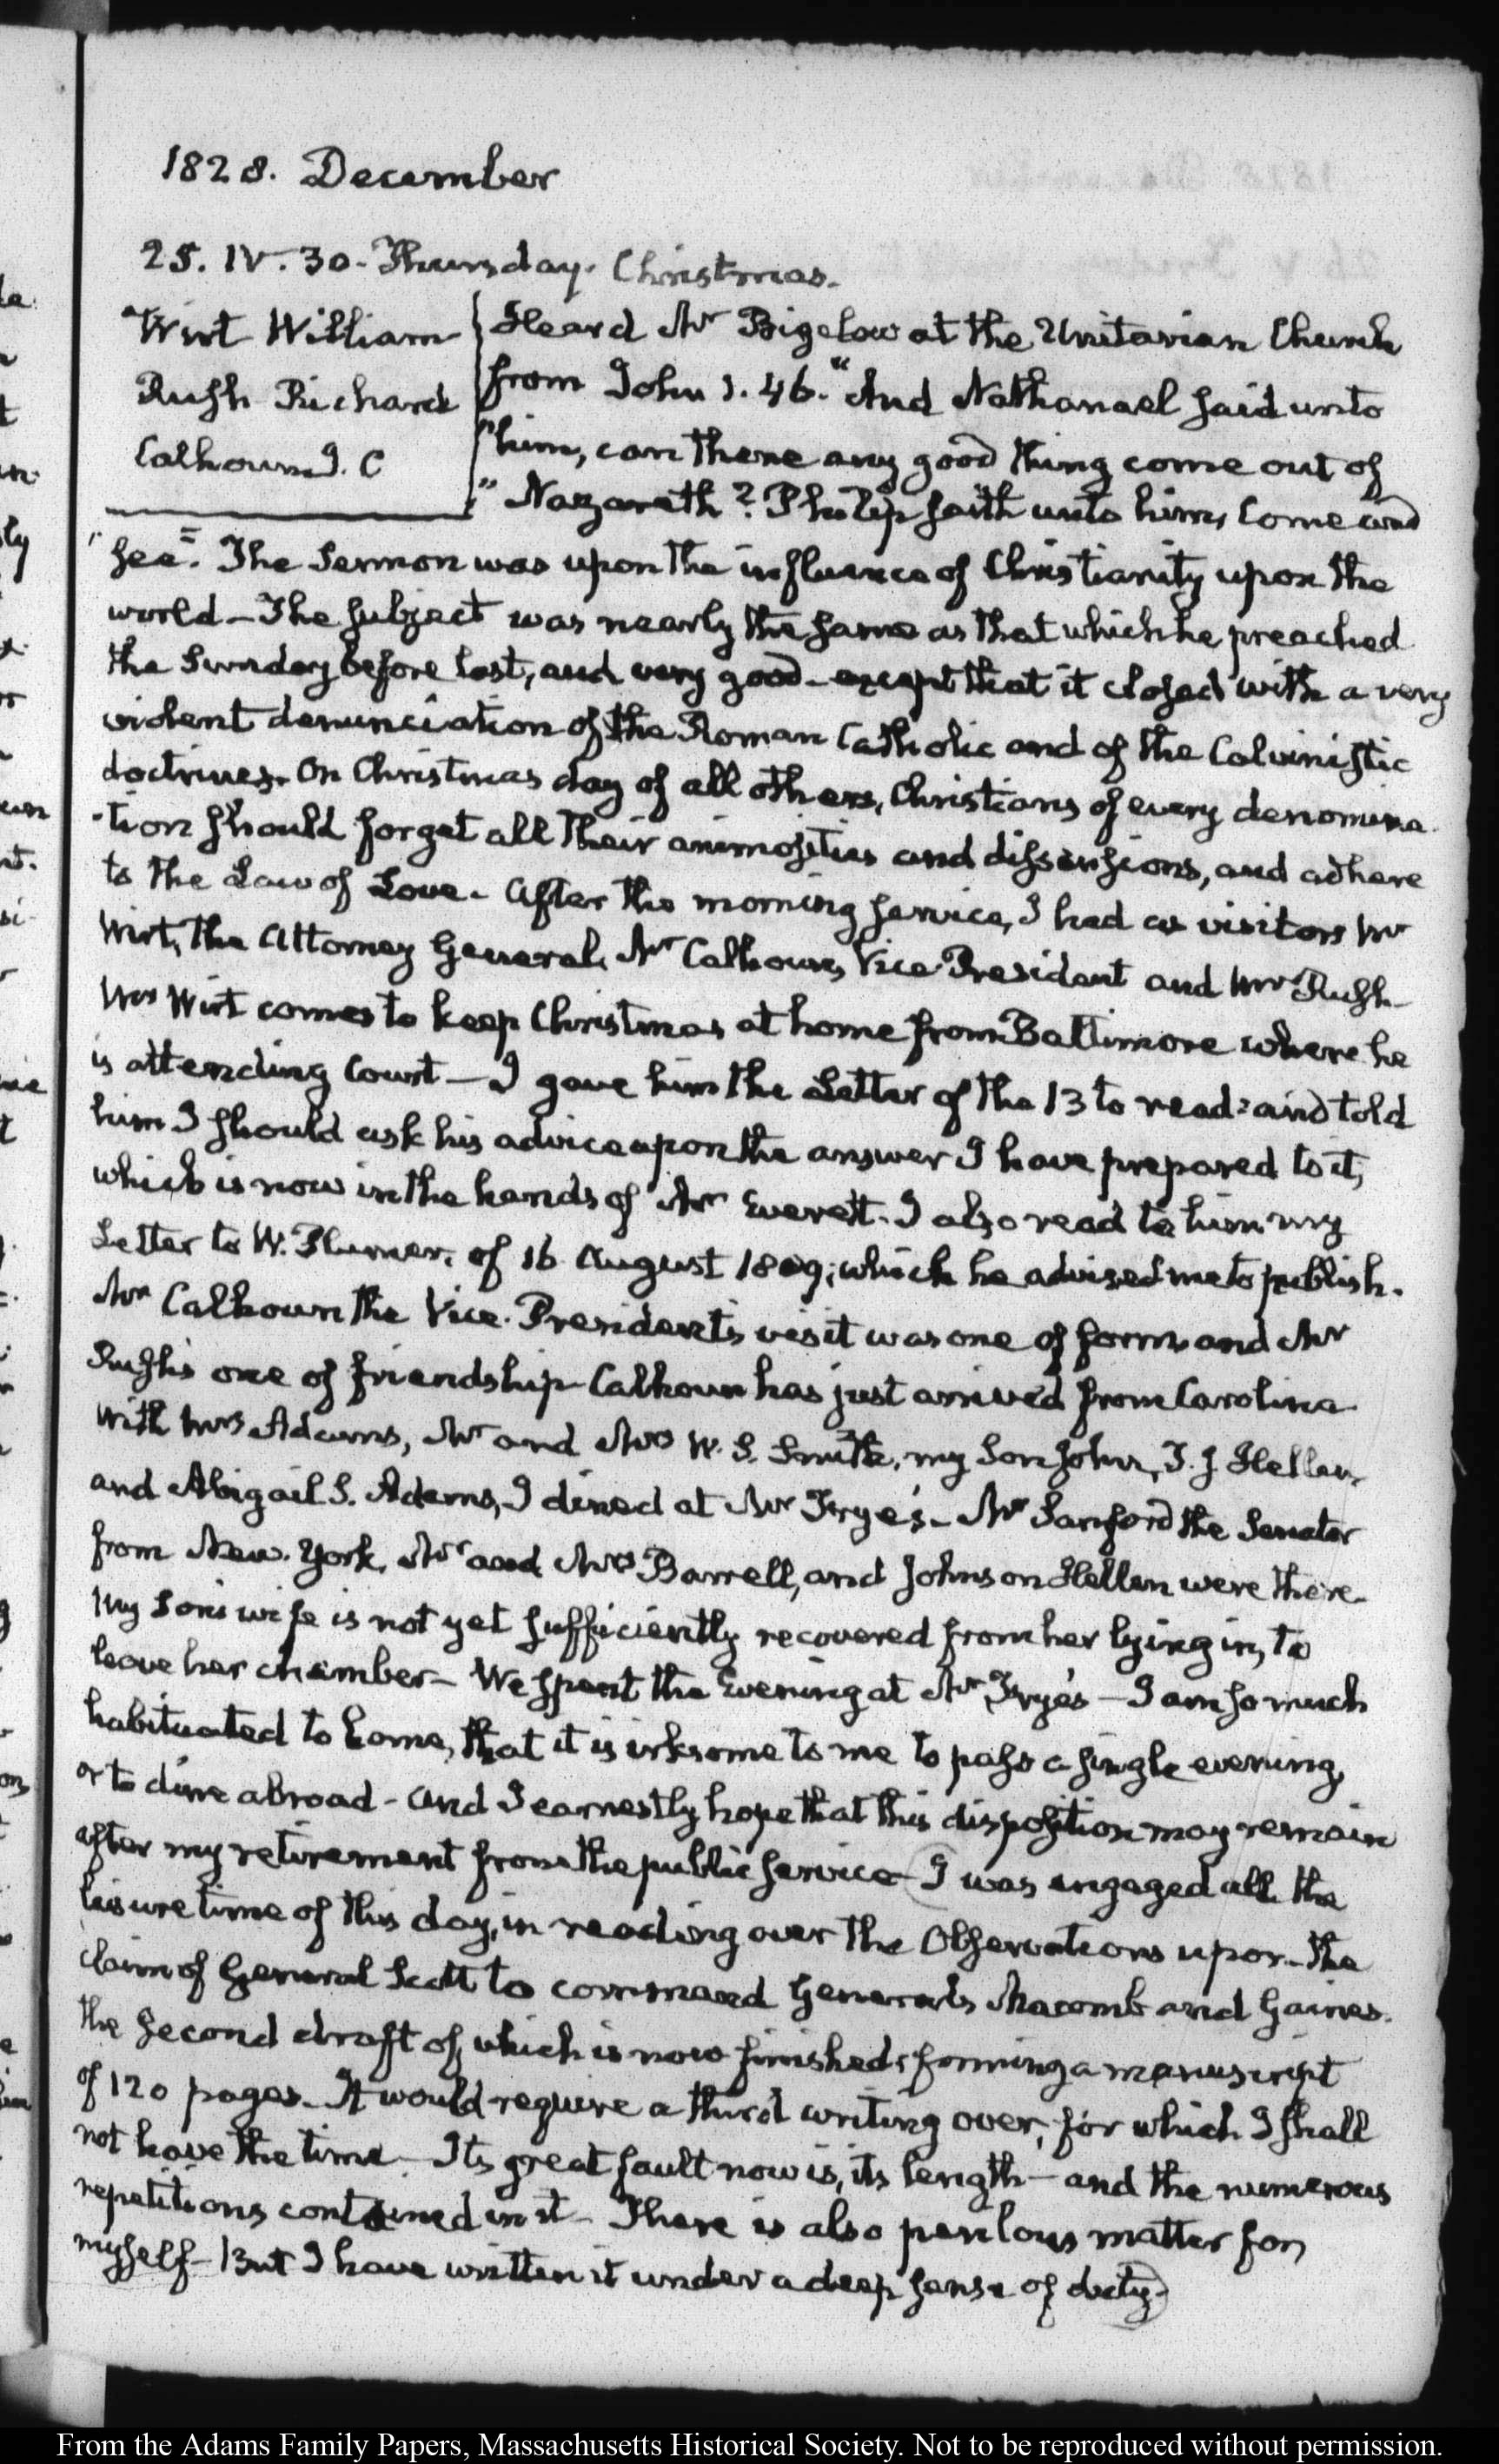 1828. December
25. IV. 30. Thursday. Christmas.
Wirt William
Rush Richard
Calhoun J. C
Heard Mr Bigelow at the Unitarian Church
from John 1. 46. "And Nathanael said unto
"him, can there any good thing come out of
"Nazareth? Philip saith unto him, Come and
"see". The Sermon was upon the influence of Christianity upon the
world — The subject was nearly the same as that which he preached
the Sunday before last, and very good — except that it closed with a very
violent denunciation of the Roman Catholic and of the Calvinistic
doctrines. On Christmas day of all others, Christians of every denomina-
-tion should forget all their animosities and dissensions, and adhere
to the Law of Love. After the morning service, I had as visitors Mr
Wirt, the Attorney General, Mr Calhoun, Vice President and Mr Rush —
Mr Wirt comes to keep Christmas at home from Baltimore where he
is attending Court — I gave him the Letter of the 13 to read: and told
him I should ask his advice upon the answer I have prepared to it,
which is now in the hands of Mr Everett. I also read to him my
Letter to W. Plumer, of 16 August 1809; which he advised me to publish.
Mr Calhoun the Vice-President's visit was one of form and Mr
Rush's one of friendship — Calhoun has just arrived from Carolina —
With Mrs Adams, Mr and Mrs W. S. Smith, my Son John, T. J. Hellen,
and Abigail S. Adams, I dined at Mr Frye's — Mr Sanford the Senator
from New-York, Mr and Mrs Barrell, and Johnson Hellen were there —
My Son's wife is not yet sufficiently recovered from her lying in, to
leave her chamber — We spent the Evening at Mr Frye's — I am so much
habituated to home, that it is irksome to me to pass a single evening,
or to dine abroad — and I earnestly hope that this disposition may remain
after my retirement from the public service — I was engaged all the
leisure time of this day, in reading over the Observations upon the
claim of General Scott to command Generals Macomb and Gaines.
the second draft of which is now finished, forming a manuscript
of 120 pages — It would require a third writing over, for which I shall
not have the time — Its great fault now is, its length — and the numerous
repetitions contained in it — There is also perilous matter for
myself — But I have written it under a deep sense of duty.
From the Adams Family Papers, Massachusetts Historical Society. Not to be reproduced without permission.